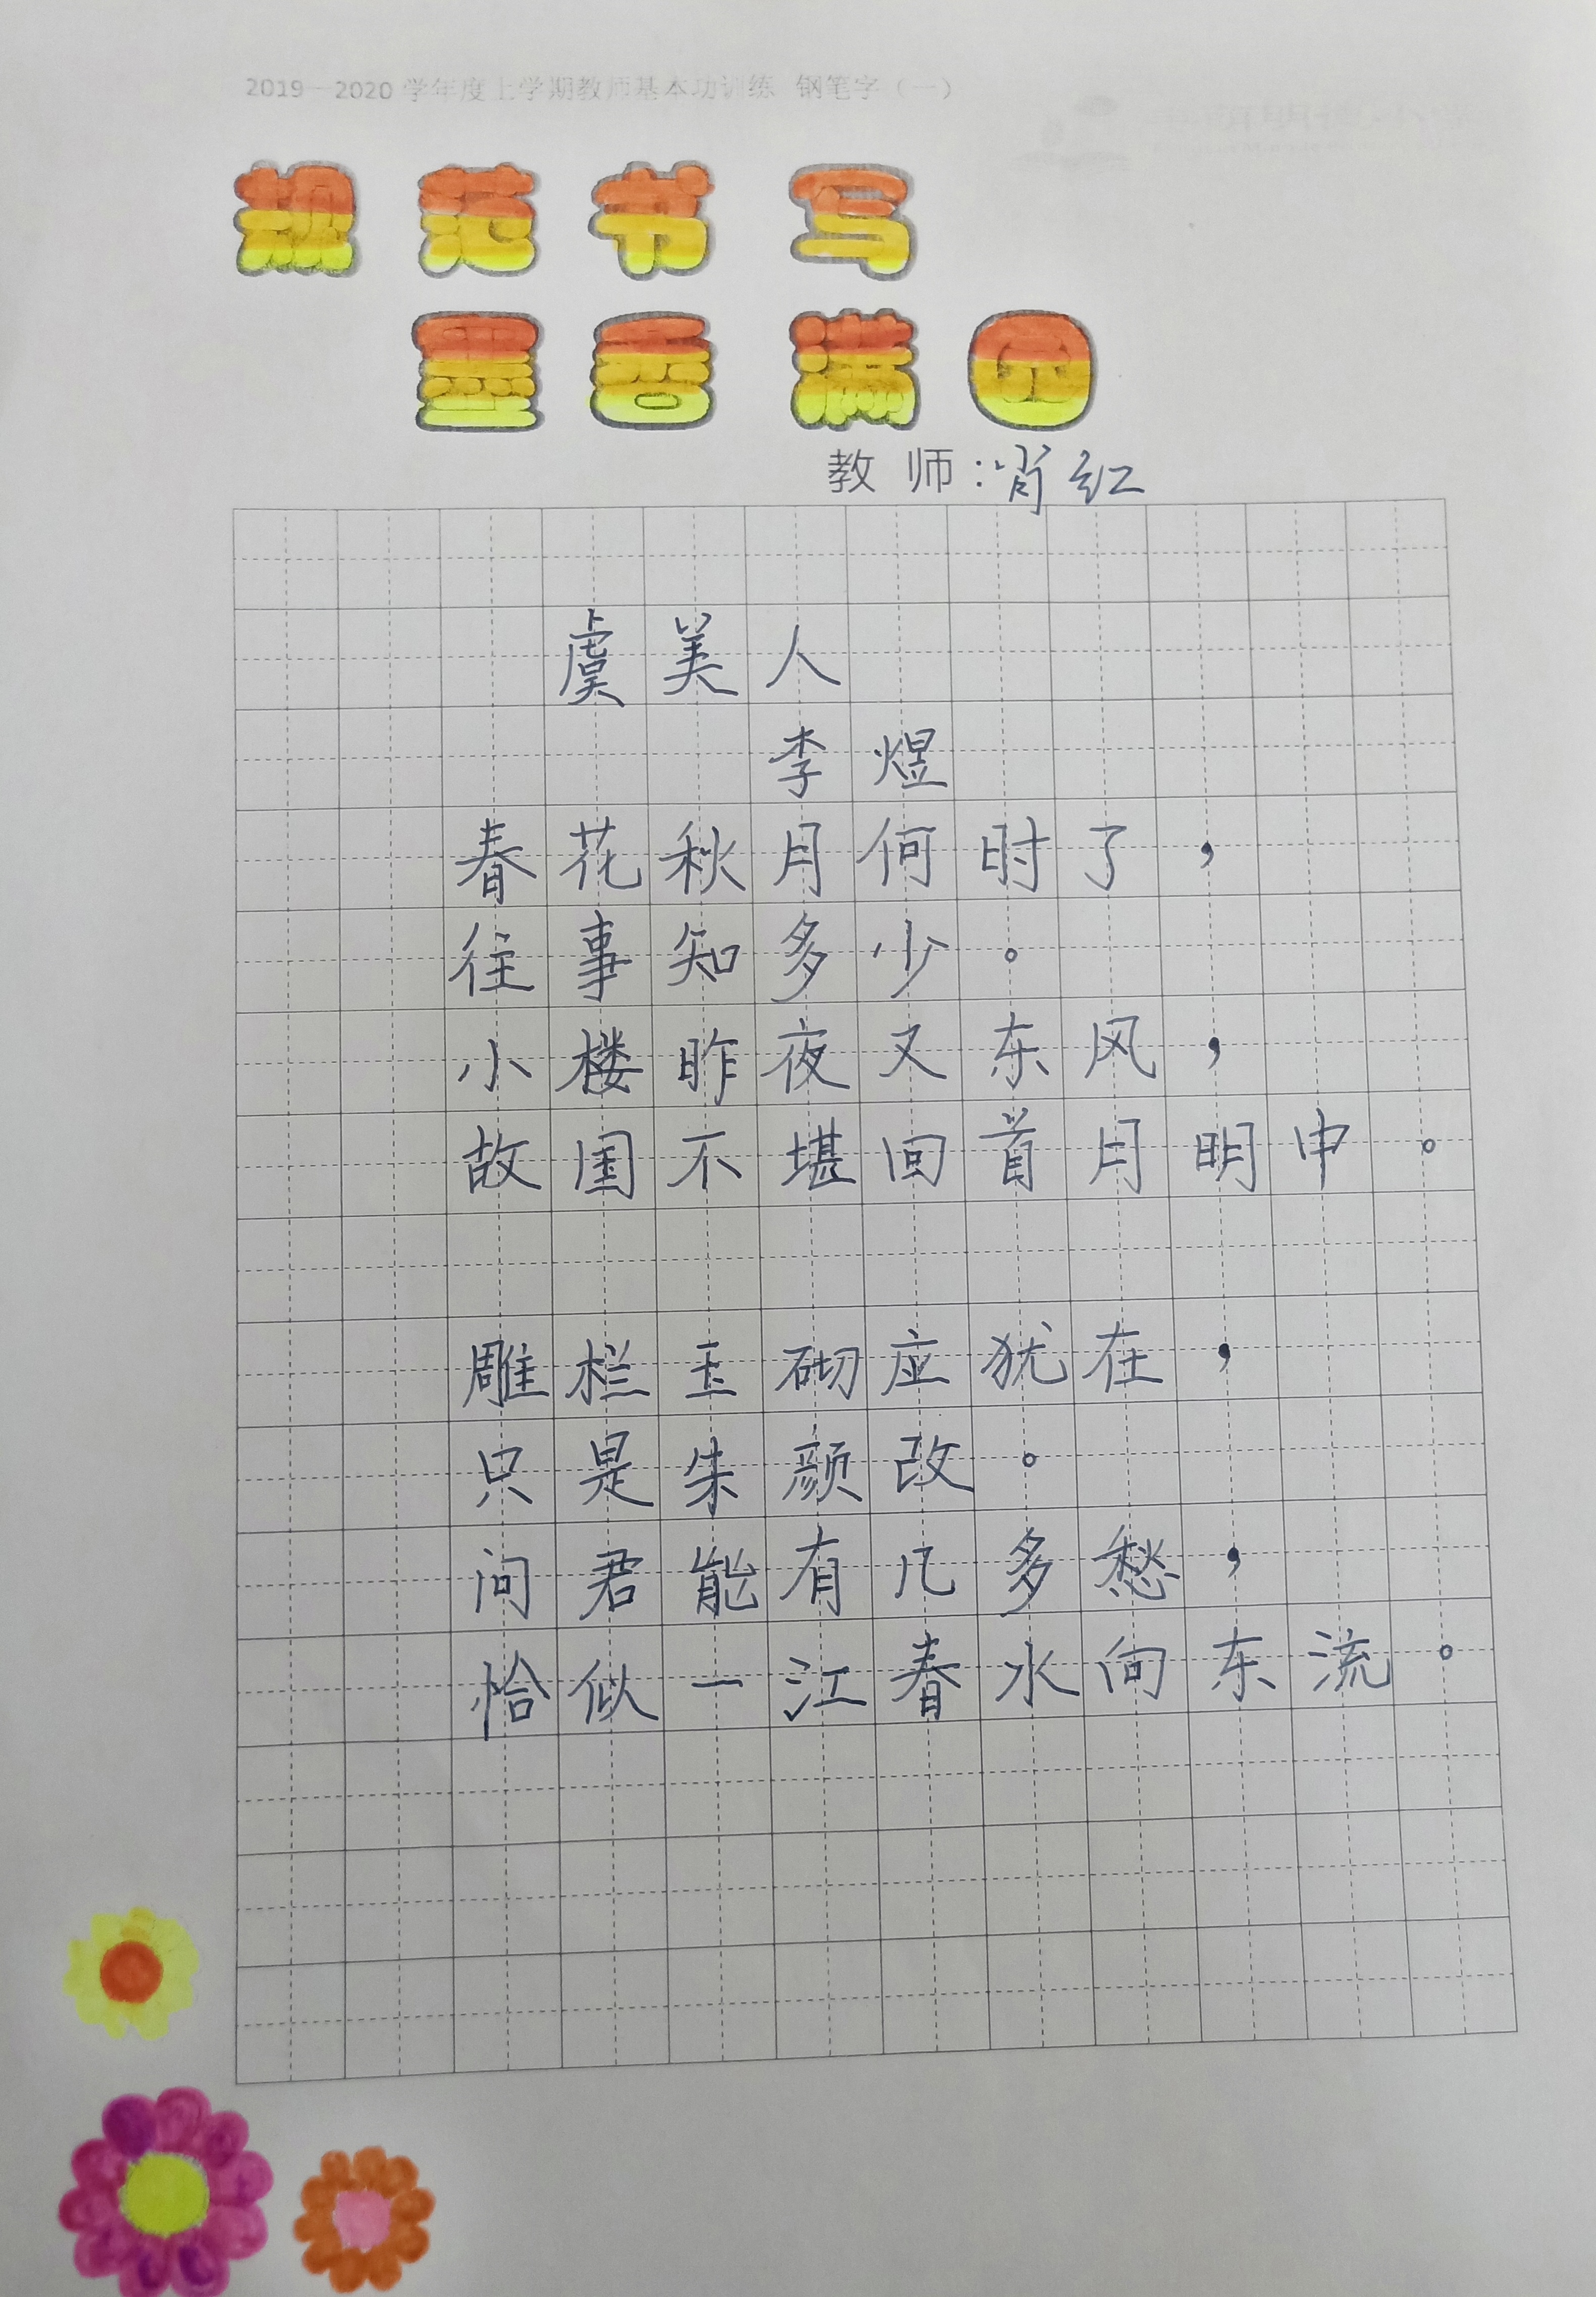 2019—2020 学年度上学期教师基本功训练 钢笔字（一）
规范书写
墨香满园
教师：肖红
虞美人
李煜
春花秋月何时了，
往事知多少。
小楼昨夜又东风，
故国不堪回首月明中。
雕栏玉砌应犹在，
只是朱颜改。
问君能有几多愁，
恰似一江春水向东流。